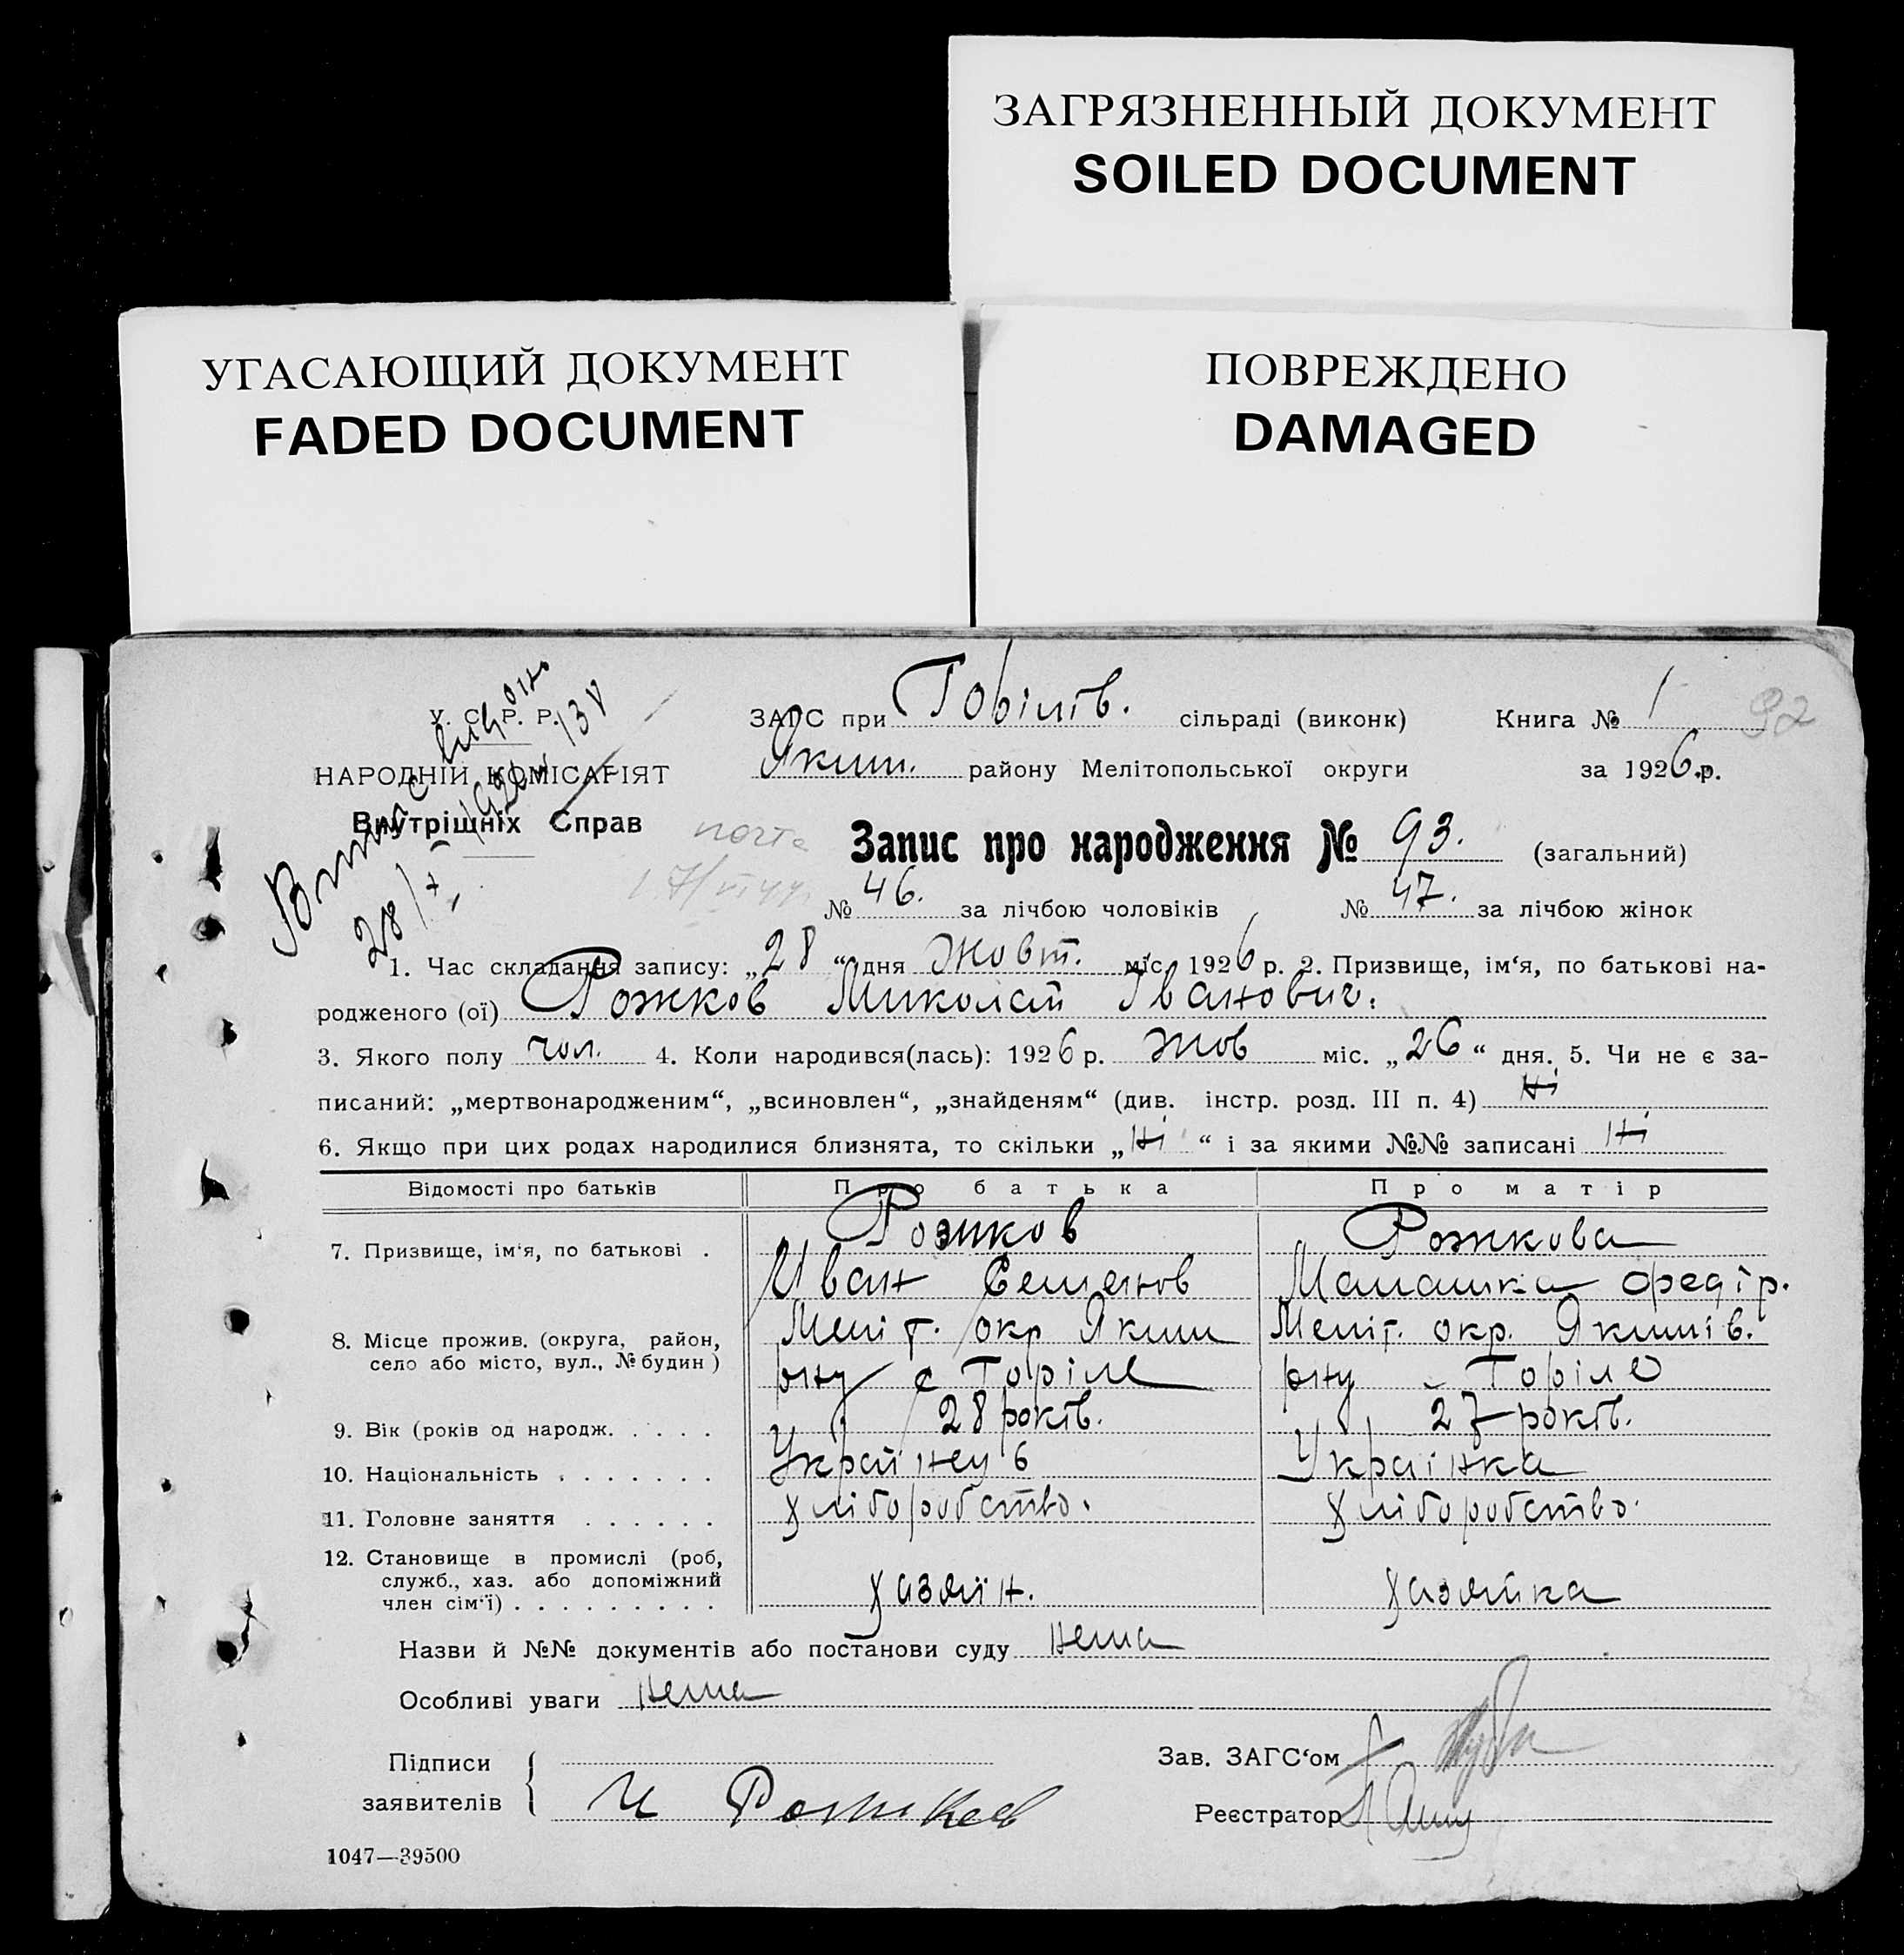 ЗАГРЯЗНЕННЫЙ ДОКУМЕНТ
SOILED DOCUMENT
УГАСАЮЩИЙ ДОКУМЕНТ
FADED DOCUMENT
ПОВРЕЖДЕНО
DAMAGED
У. С. Р. Р.
НАРОДНІЙ КОМІСАРІЯТ
Внутрішніх Справ
28/X
ЗАГС при сільраді (виконк) Книга № 1 92
Яким. району Мелітопольської округи за 1926 р.
Запис про народження № 93. (загальний)
№ 46. за лічбою чоловіків № 47. за лічбою жінок
1. Час складання запису: „28“ дня Жовт. міс. 1926 р. 2. Призвище, ім‘я, по батькові на-
родженого (ої) Рожков Миколай Іванович.
3. Якого полу чол. 4. Коли народився(лась): 1926 р. Жов міс. „26“ дня. 5. Чи не є за-
писаний: „мертвонародженим“, „всиновлен“, „знайденям“ (див. інстр. розд. III п. 4) Ні
6. Якщо при цих родах народилися близнята, то скільки „Ні“ і за якими №№ записані Ні
Відомості про батьків Про батька Про матір
7. Призвище, ім‘я, по батькові . Рожков Рожкова
Иван Семенов Малашка Федір.
8. Місце прожив. (округа, район, Меліт. окр Яким Меліт. окр. Якимів.
село або місто, вул., № будин ) рну с Горіле рну с Горіле
9. Вік (років од народж. . . . . 28 років. 27 років.
10. Національність . . . . . . . Українець Українка
11. Головне заняття . . . . . . хліборобство. хліборобство.
12. Становище в промислі (роб,
служб., хаз. або допоміжний
член сім‘ї) . . . . . . . . . хазяїн. хазяйка
Назви й №№ документів або постанови суду нема
Особливі уваги нема
Підписи
заявителів И Рожков
Зав. ЗАГС‘ом
Реєстратор
1047—39500